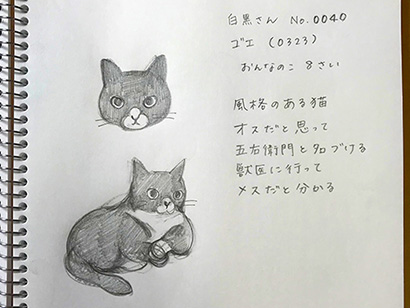 白黒さん No.0040
ゴエ (0323)
おんなのこ 8さい
風格のある猫
オスだと思って
五右衛門と名づける
獣医に行って
メスだと分かる